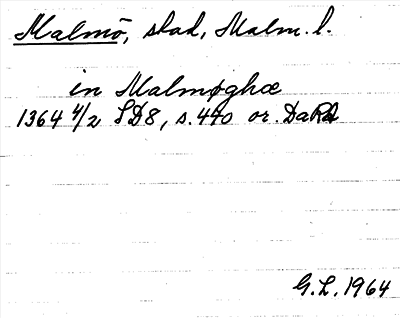 Malmö, stad, Malm. l.
in Malmøghæ
1364 4/2 SD8, s. 440 or. DaRA
G.L. 1964